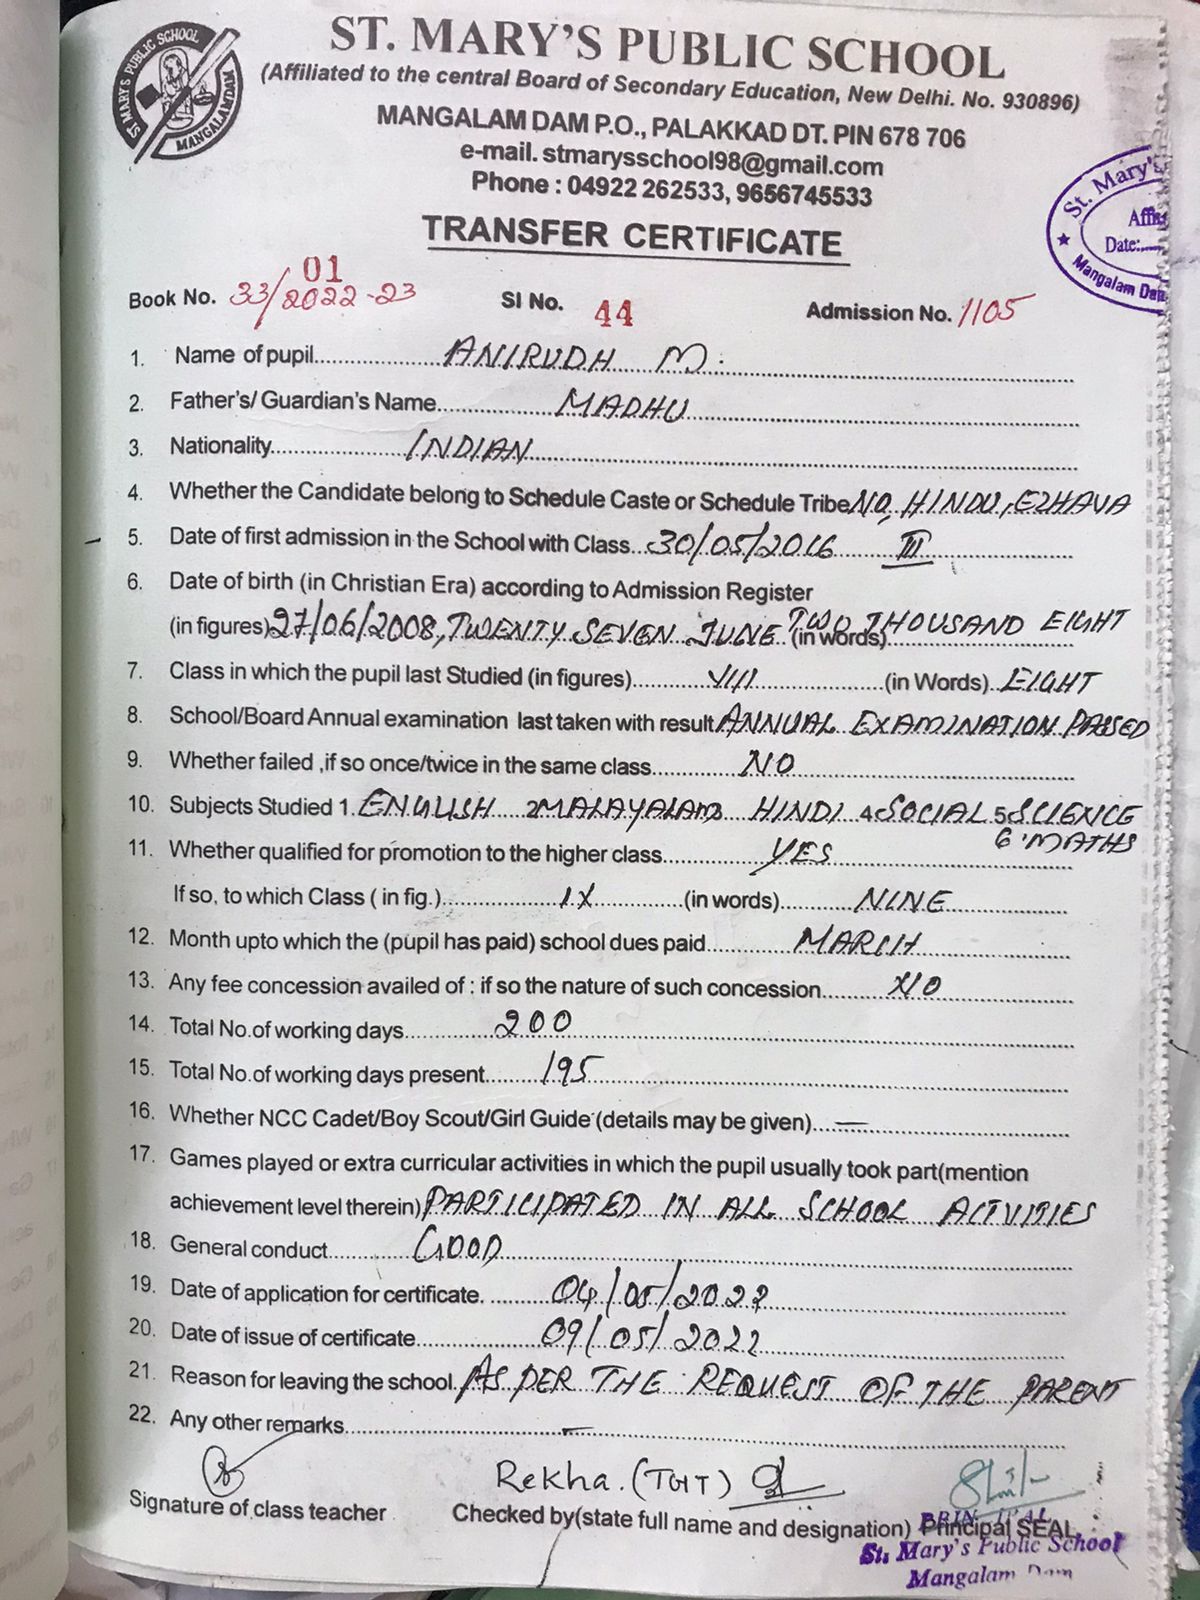 ST. MARY'S PUBLIC SCHOOL
ST MARY'S PUBLIC SCHOOL
MANGALAMDAM
(Affiliated to the central Board of Secondary Education, New Delhi. No. 930896)
MANGALAM DAM P.O., PALAKKAD DT. PIN 678 706
e-mail. stmarysschool98@gmail.com
Phone : 04922 262533, 9656745533
St. Mary's
Date:
Mangalam Dam
TRANSFER CERTIFICATE
01
Book No. 33/2022-23 SI No. 44 Admission No. 1105
1. Name of pupil ANIRUDH M.
2. Father's/ Guardian's Name MADHU
3. Nationality INDIAN
4. Whether the Candidate belong to Schedule Caste or Schedule Tribe NO, HINDU, EZHAVA
5. Date of first admission in the School with Class 30/05/2016 III
6. Date of birth (in Christian Era) according to Admission Register
(in figures) 27/06/2008, TWENTY SEVEN JUNE (in words) TWO THOUSAND EIGHT
7. Class in which the pupil last Studied (in figures) VIII (in Words) EIGHT
8. School/Board Annual examination last taken with result ANNUAL EXAMINATION PASSED
9. Whether failed ,if so once/twice in the same class NO
10. Subjects Studied 1. ENGLISH 2 MALAYALAM 3 HINDI 4 SOCIAL 5 SCIENCE
6 MATHS
11. Whether qualified for promotion to the higher class YES
If so, to which Class ( in fig.) IX (in words) NINE
12. Month upto which the (pupil has paid) school dues paid MARCH
13. Any fee concession availed of : if so the nature of such concession NO
14. Total No.of working days 200
15. Total No.of working days present 195
16. Whether NCC Cadet/Boy Scout/Girl Guide (details may be given) —
17. Games played or extra curricular activities in which the pupil usually took part(mention
achievement level therein) PARTICIPATED IN ALL SCHOOL ACTVITIES
18. General conduct GOOD
19. Date of application for certificate. 04/05/2022
20. Date of issue of certificate 09/05/2022
21. Reason for leaving the school. AS PER THE REQUEST OF THE PARENT
22. Any other remarks –
Rekha. (TGT)
Signature of class teacher Checked by(state full name and designation) Principal SEAL
St. Mary's Public School
Mangalam Dam